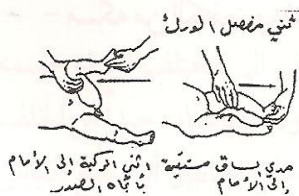 ثني مفصل الورك
مدي بساق مستقيمة
إلى الأمام
اثني الركبة إلى الأمام
بأتجاه الصدر